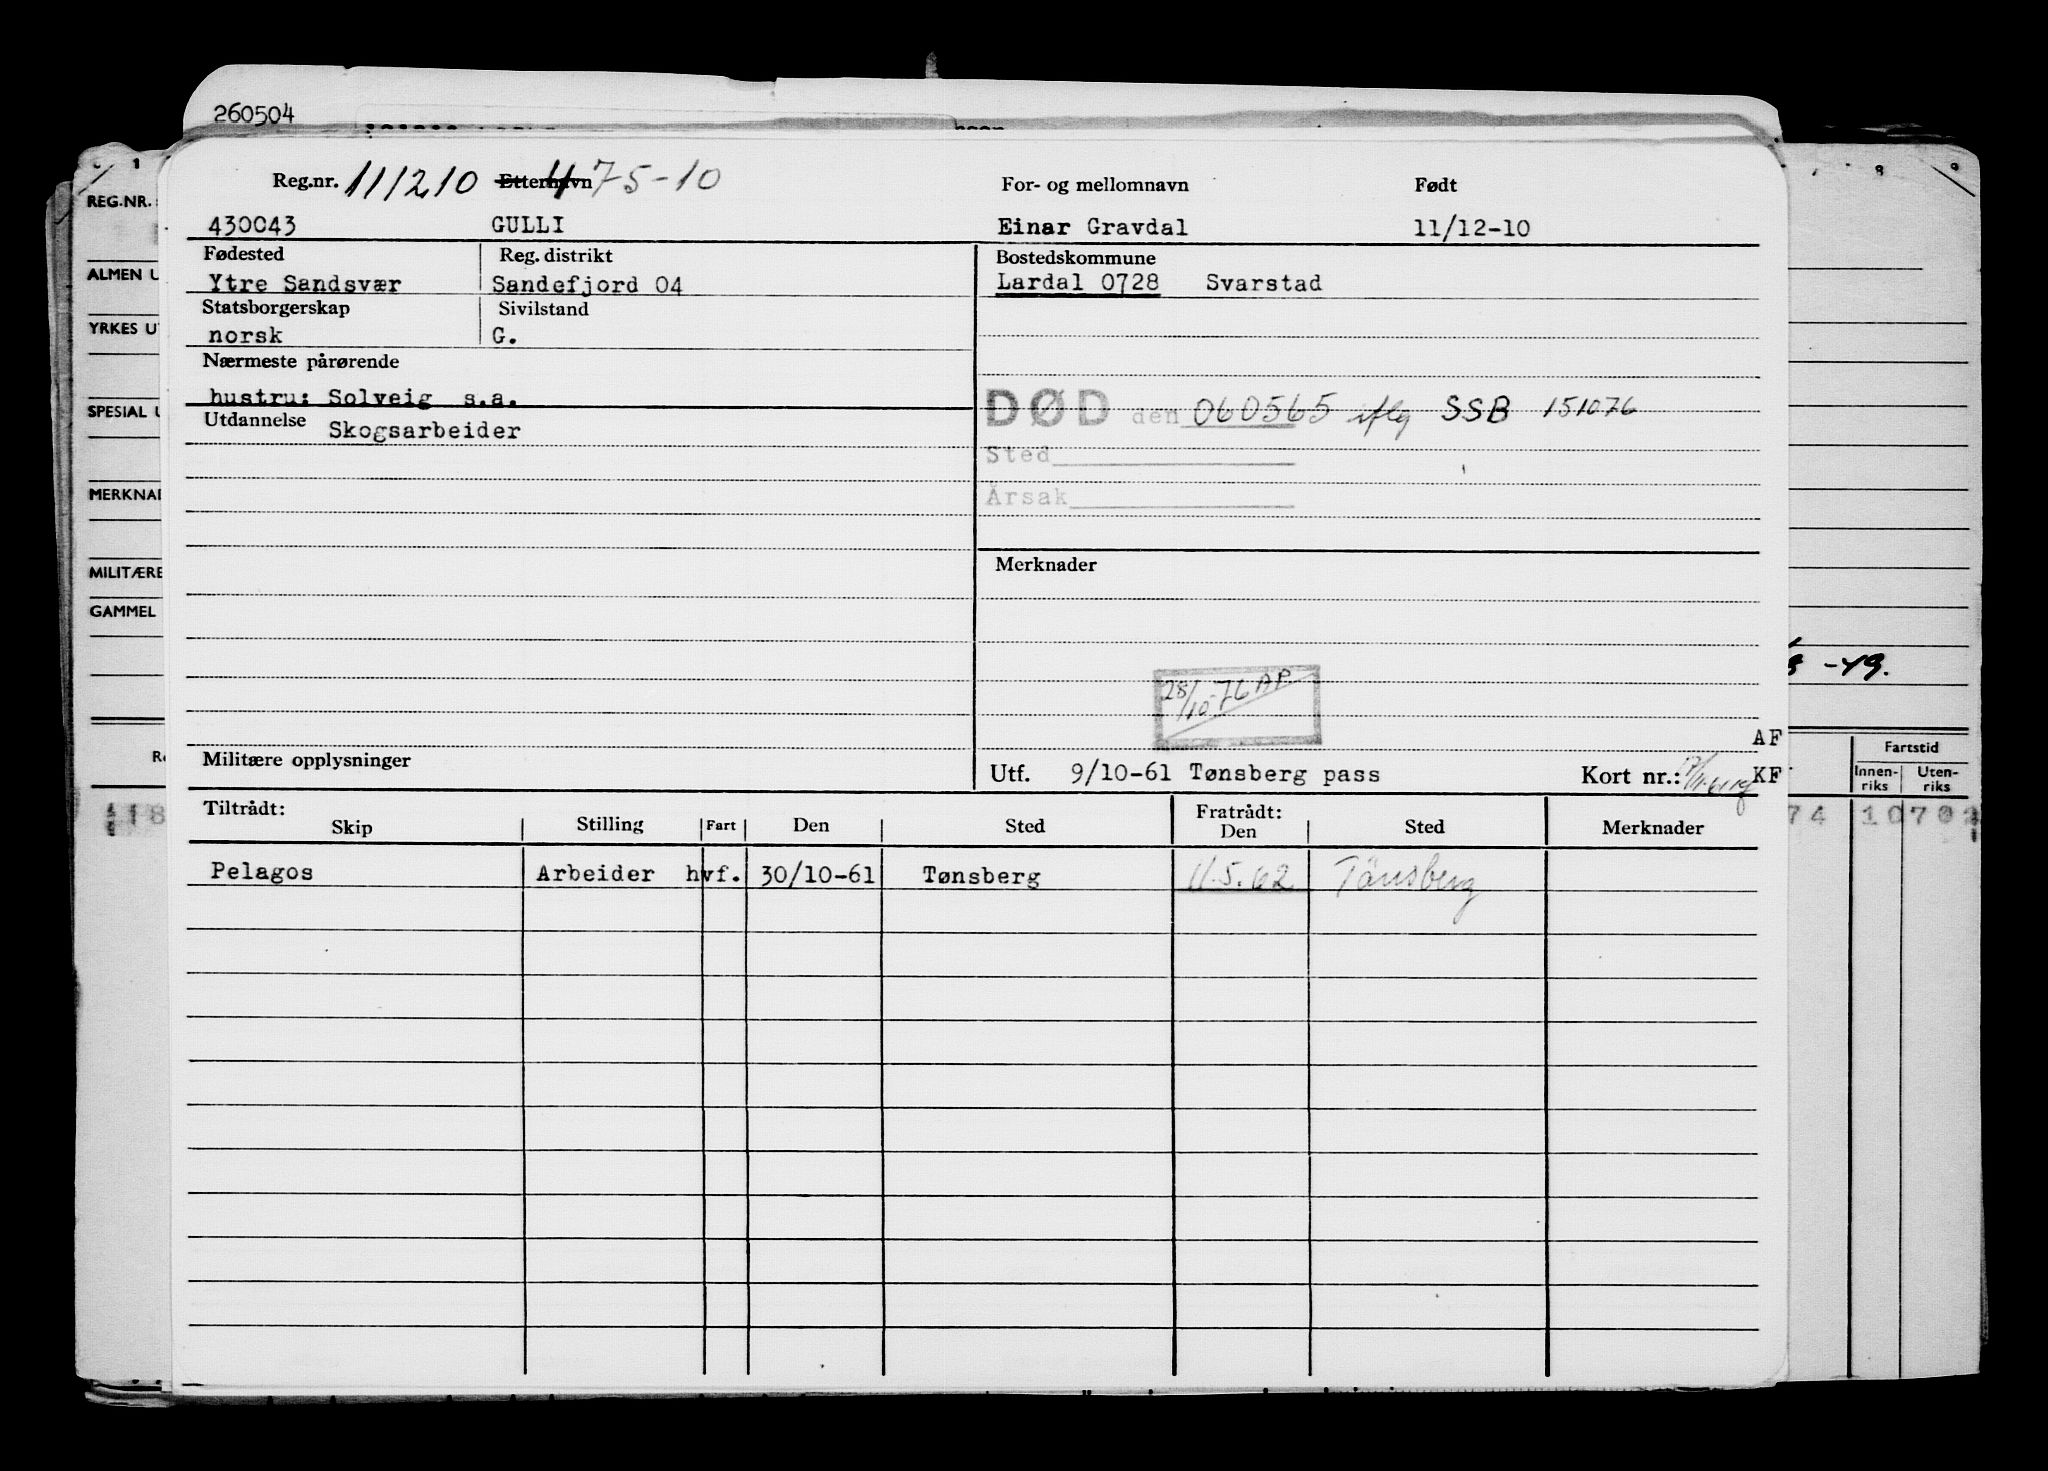 260504
Reg.nr. 111210 Etternavn 475-10 For- og mellomnavn Født
430043 GULLI Einar Gravdal 11/12-10
Fødested Reg. distrikt Bostedskommune
Ytre Sandsvær Sandefjord 04 Lardal 0728 Svarstad
Statsborgerskap Sivilstand
norsk G.
Nærmeste pårørende
hustru: Solveig s.a.
DØD den 060565 iflg SSB 151076
Utdannelse Skogsarbeider
Sted
Årsak
Merknader
28/10-76 AP.
AF
Militære opplysninger Utf. 9/10-61 Tønsberg pass Kort nr.: KF
Tiltrådt: Fratrådt:
Skip Stilling Fart Den Sted Den Sted Merknader
Pelagos Arbeider hvf. 30/10-61 Tønsberg 11.5.62 Tønsberg
REG.NR.
ALMEN U
YRKES UT
SPESIAL U
MERKNAD
MILITÆRE
GAMMEL
-49.
Fartstid
Innen-riks Uten-riks
118
74 10702